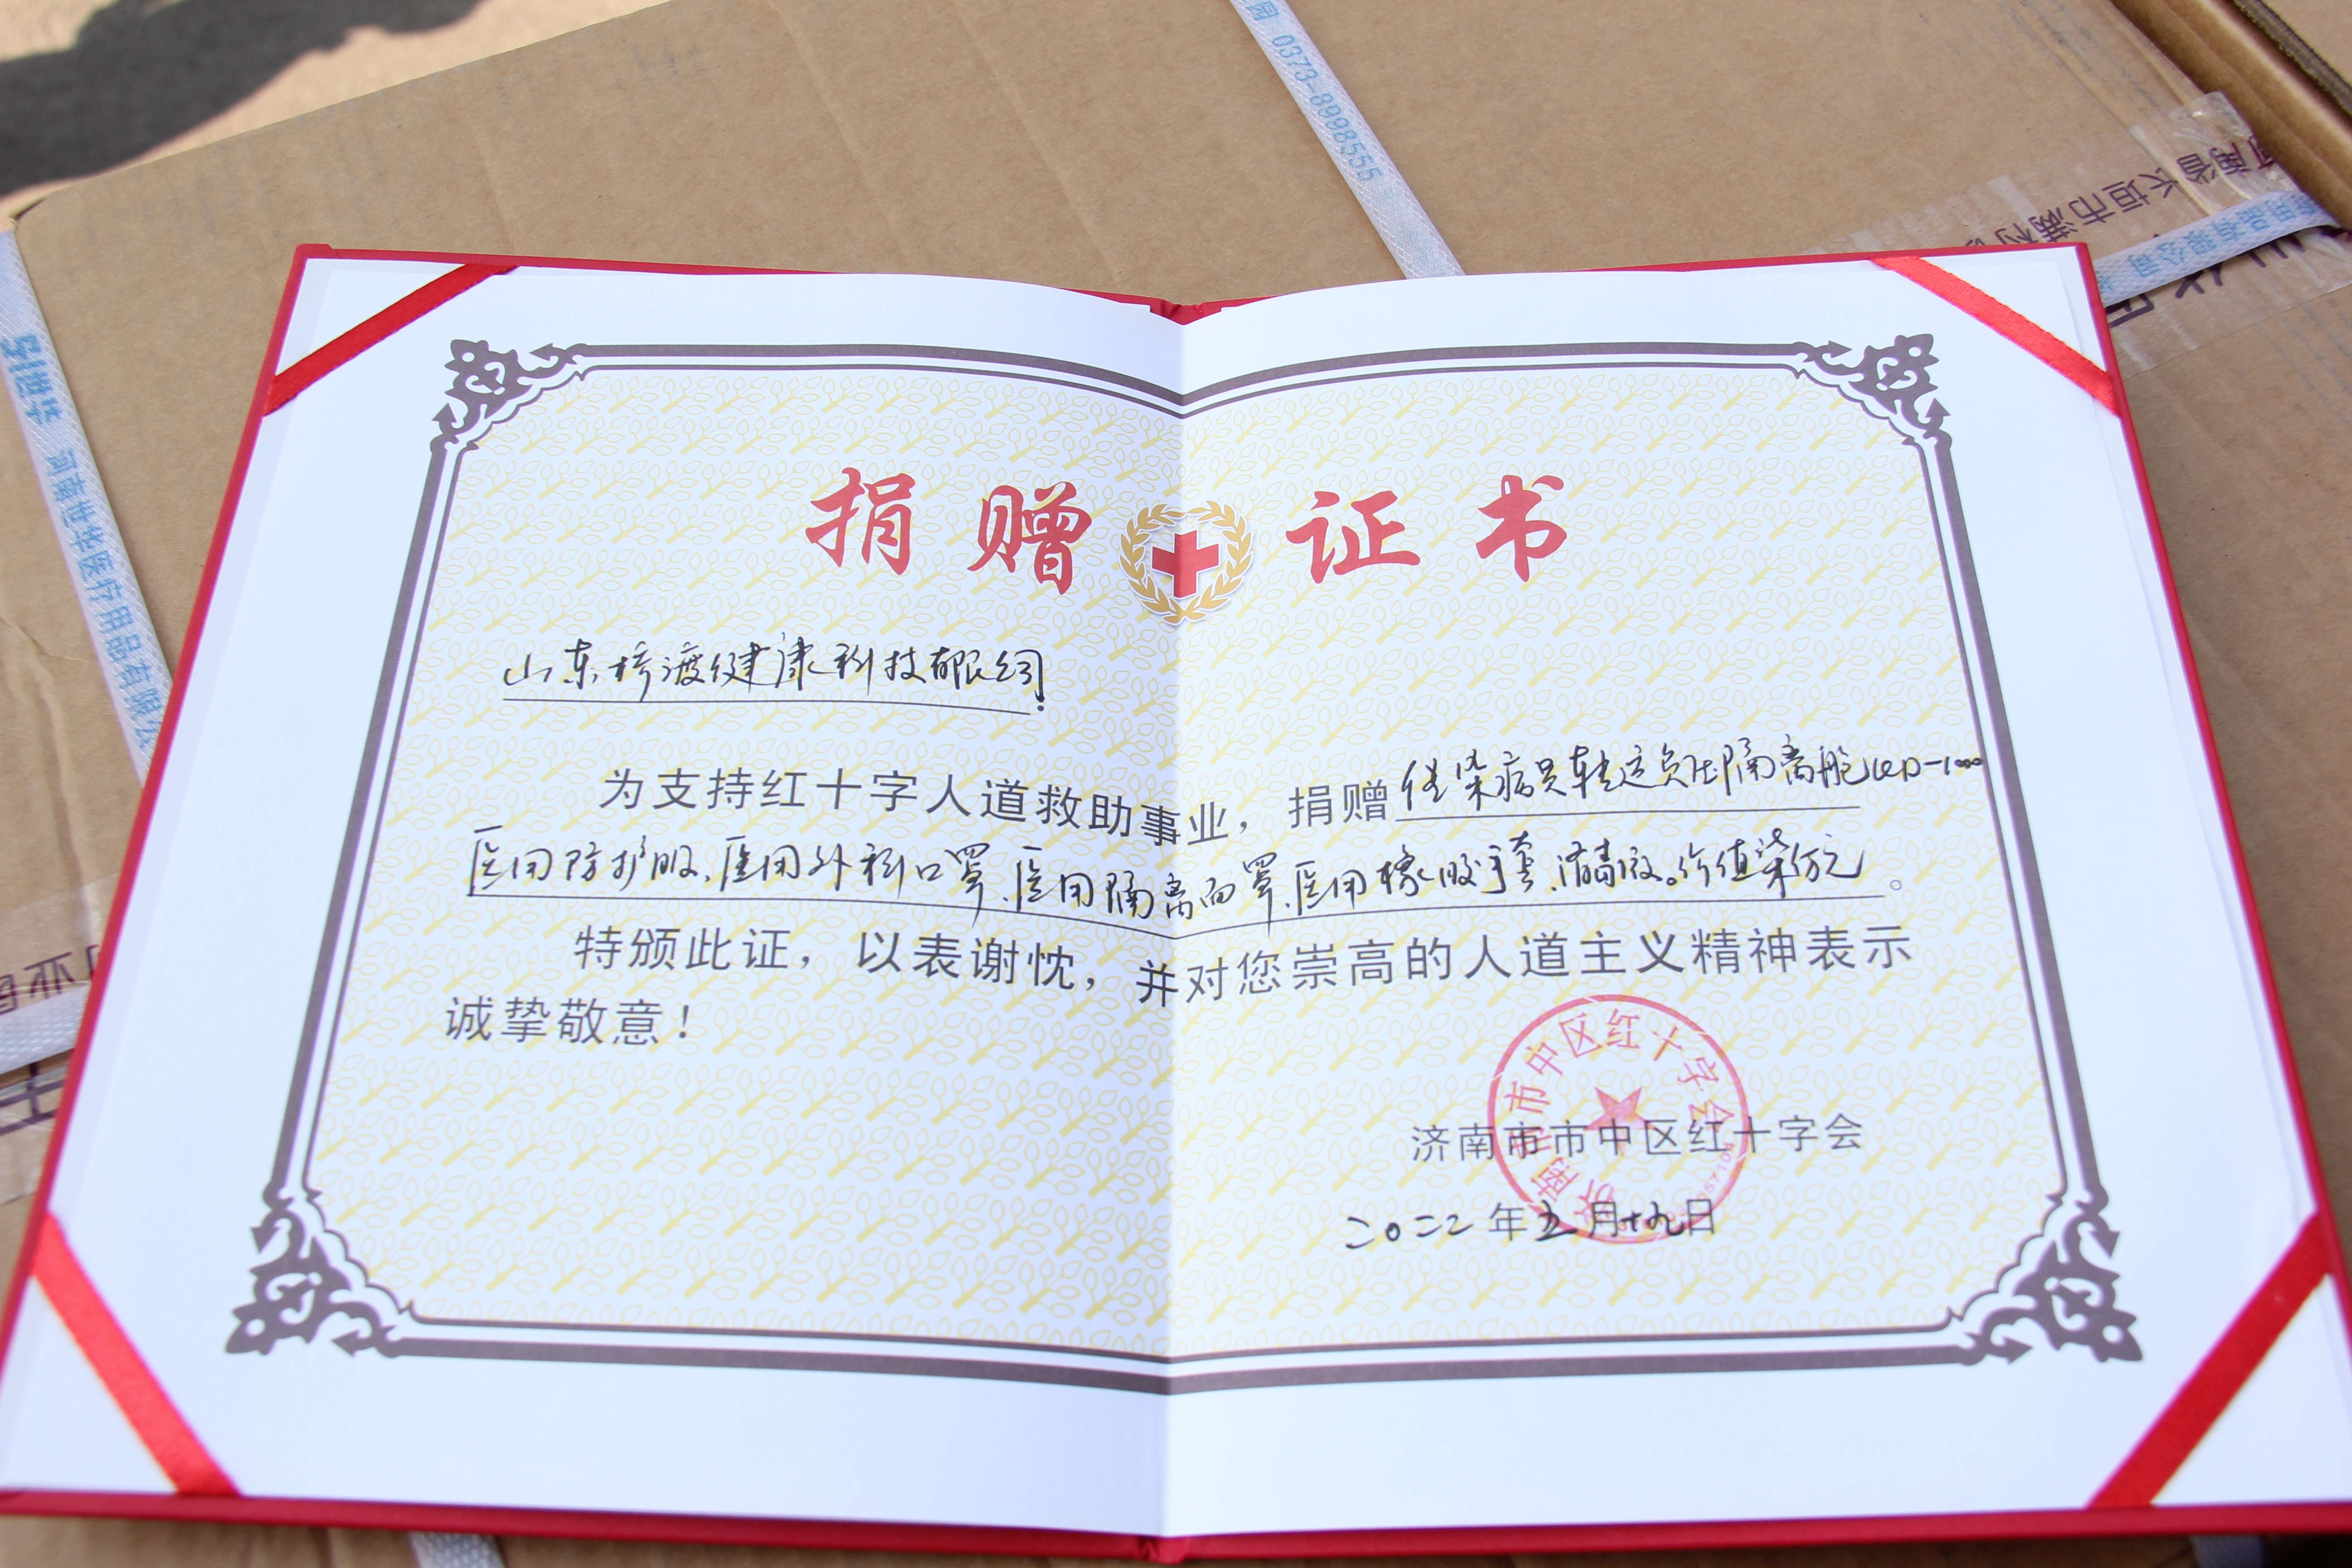 园 0373-8998555
河南省长垣市满村
限有限公司
河南世华医疗用品有限公
捐赠证书
山东梓渡健康科技有限公司!
为支持红十字人道救助事业，捐赠传染病员转运负压隔离舱
医用防护服、医用外科口罩、医用隔离面罩、医用橡胶手套、消毒液。价值柒万元。
特颁此证，以表谢忱，并对您崇高的人道主义精神表示
诚挚敬意！
济南市市中区红十字会
济南市市中区红十字会
二〇二二年五月十九日